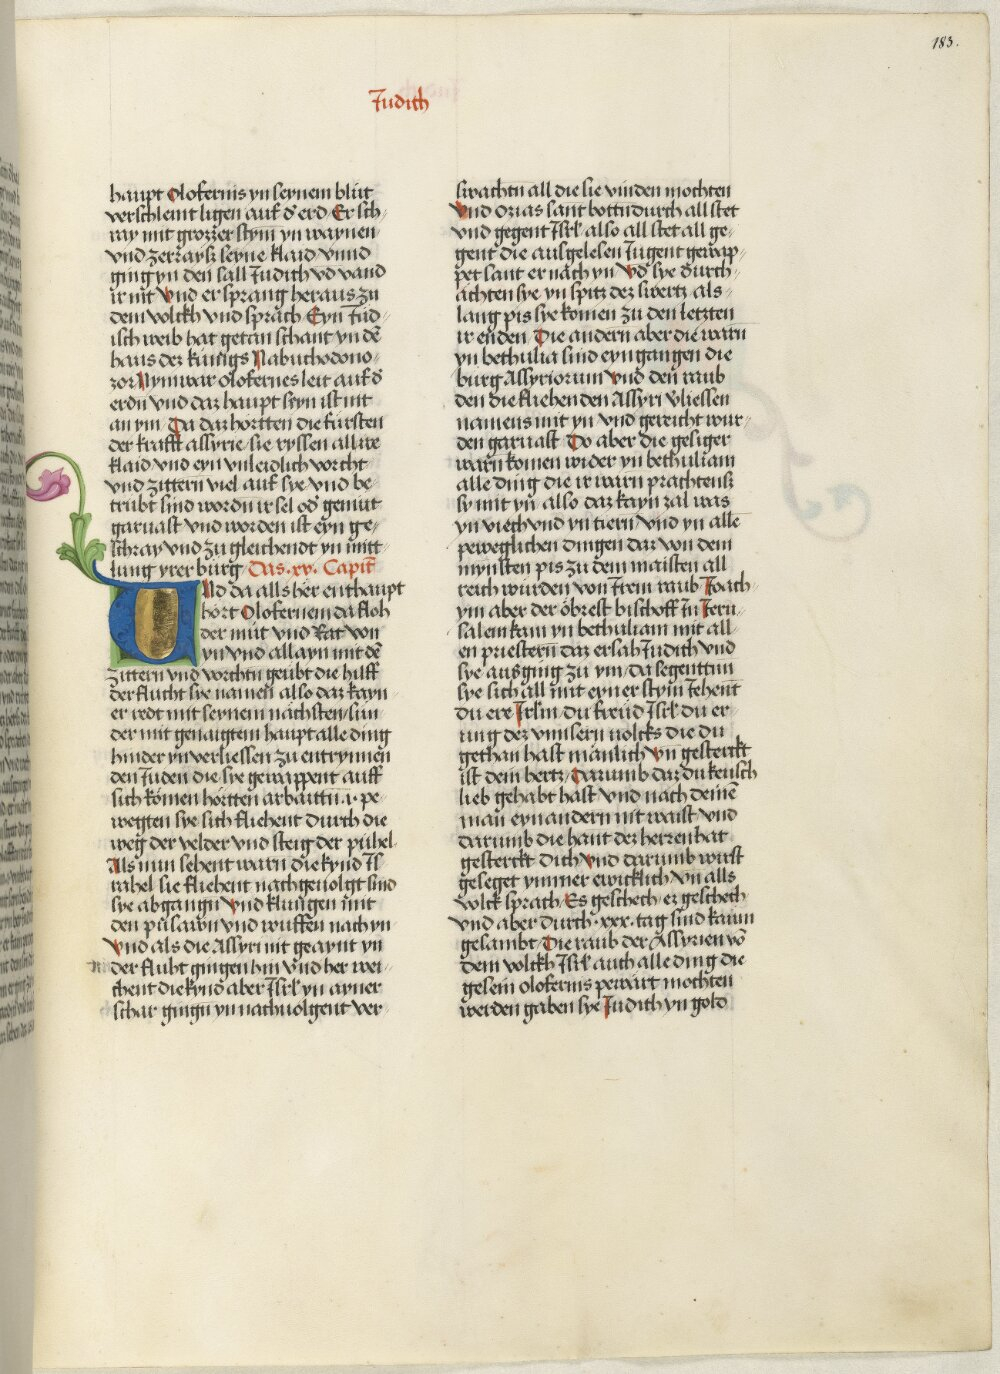 183.
Judith
haupt Olofernis yn seynem blüt
verschlemt ligen auf d' erd Er sch-
ray mit grozzer stym yn waynen
vnd zerraysz seyne klaid vnnd
ging yn den sall Judith vd vand
ir nit Vnd er sprang heraus zu
dem volckh vnd sprach Eyn Jüd-
isch weib hat getan schant yn dē
haus dez künigs Nabuchodono-
zor Nym war Olofernes leit auf d'
erdn vnd daz haupt seyn ist nit
an ym Da daz hortten die fürsten
der krafft assyrie sie ryssen all ire
klaid vnd eyn vnleidlich vorcht
vnd zittern viel auf sye vnd be-
trübt sind wordn ir sel od' gemüt
garuast vnd worden ist eyn ge-
schray vnd zu gleichendt yn mitt-
lung yrer burg Das .xv. Capit̄
Vnd da alls her enthaupt
hört Olofernem da floh
der müt vnd Rat von
yn vnd allayn mit dē
zittern vnd vorchtn geübt die hilff
der flucht sye namen also daz kayn
er redt mit seynem nächsten sun-
der mit genaigtem haupt alle ding
hinder yn verliessen zu entrynnen
den Juden die sye gewappent auff
sich kömen hörtten arbaittn .i. pe-
wegten sye sich fliehent durch die
weg der velder vnd steig der pühel
Als nun sehent warn die kynd Is-
rahel sie fliehent nachgeuolgt sind
sye abgangn Vnd klungen mit
den püsawn vnd wuffen nach yn
Vnd als die Assyri nit geaynt yn
der fluht gingen hin vnd her wei-
chent die kynd aber Isrl' yn ayner
schar gingn yn nachuolgent ver-
swachtn all die sie vinden mochten
Vnd Ozias sant bottn durch all stet
vnd gegent Isrl' also all stet all ge-
gent die ausgelesen Jugent gewap-
pet sant er nach yn Vd sye durch-
ächten sye yn spitz dez swertz als-
lang pis sye komen zu den letzten
ir enden Die andern aber die warn
yn bethulia sind eyngangen die
burg Assyriorum Vnd den raub
den die fliehenden Assyri vliessen
namens mit yn vnd gereicht wur-
den garuast Do aber die gesiger
warn komen wider yn bethuliam
alle ding die ir warn prachtens
sy mit yn also daz kayn zal was
yn viech vnd yn tiern vnd yn alle
peweglichen dingen daz von dem
mynsten pis zu dem maisten all
reich würden von Jrem raub Joach-
ym aber der öbrest bischoff zu Jeru-
salem kam yn bethuliam mit all-
en priestern daz er sah Judith vnd
sye ausging zu ym da segenttnn
sye sich all mit eyner stym Jehent
du ere Jrl'm du freüd Jsrl' du er-
ung dez vnnsern volcks die du
gethan hast manlich Vn gesterckt
ist dein hertz Darumb daz du keusch
lieb gehabt hast vnd nach deinē
man eyn andern nit waist vnd
darumb die hant dez herren hat
gesterckt dich Vnd darumb wirst
geseget ymmer ewicklich Vn alls
volck sprach Es geschech ez geschech
vnd aber durch .xxx. tag sind kaum
gesambt Die raub der Assyrien vō
dem volckh Jsrl' auch alle ding die
gesein olofernis pewart mochten
werden gaben sye Judith yn gold